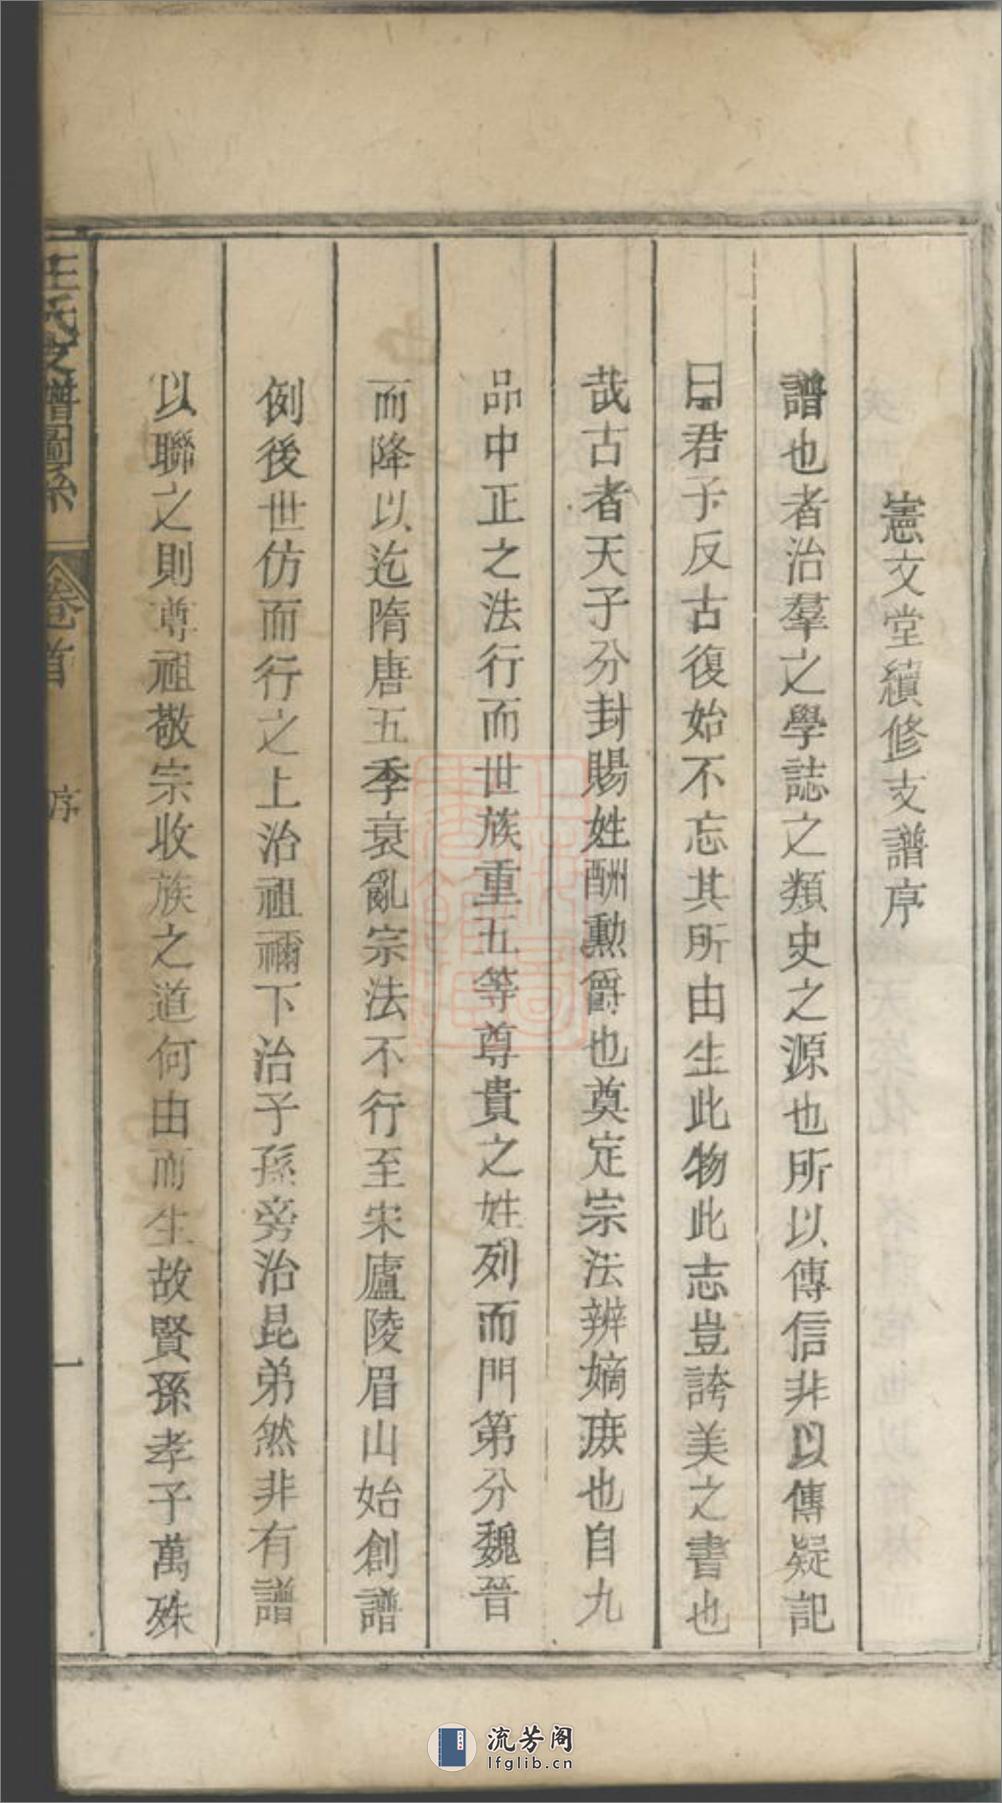 憲文堂續修支譜序
譜也者治羣之學誌之類史之源也所以傳信非以傳疑記
曰君子反古復始不忘其所由生此物此志豈誇美之書也
哉古者天子分封賜姓酬勲爵也奠定宗法辨嫡庶也自九
品中正之法行而世族重五等尊貴之姓列而門第分魏晉
而降以迄隋唐五季衰亂宗法不行至宋廬陵眉山始創譜
例後世仿而行之上治祖禰下治子孫旁治昆弟然非有譜
以聯之則尊祖敬宗收族之道何由而生故賢孫孝子萬殊
王氏支譜圖系 卷首 序 一
流芳阁
lfglib.cn